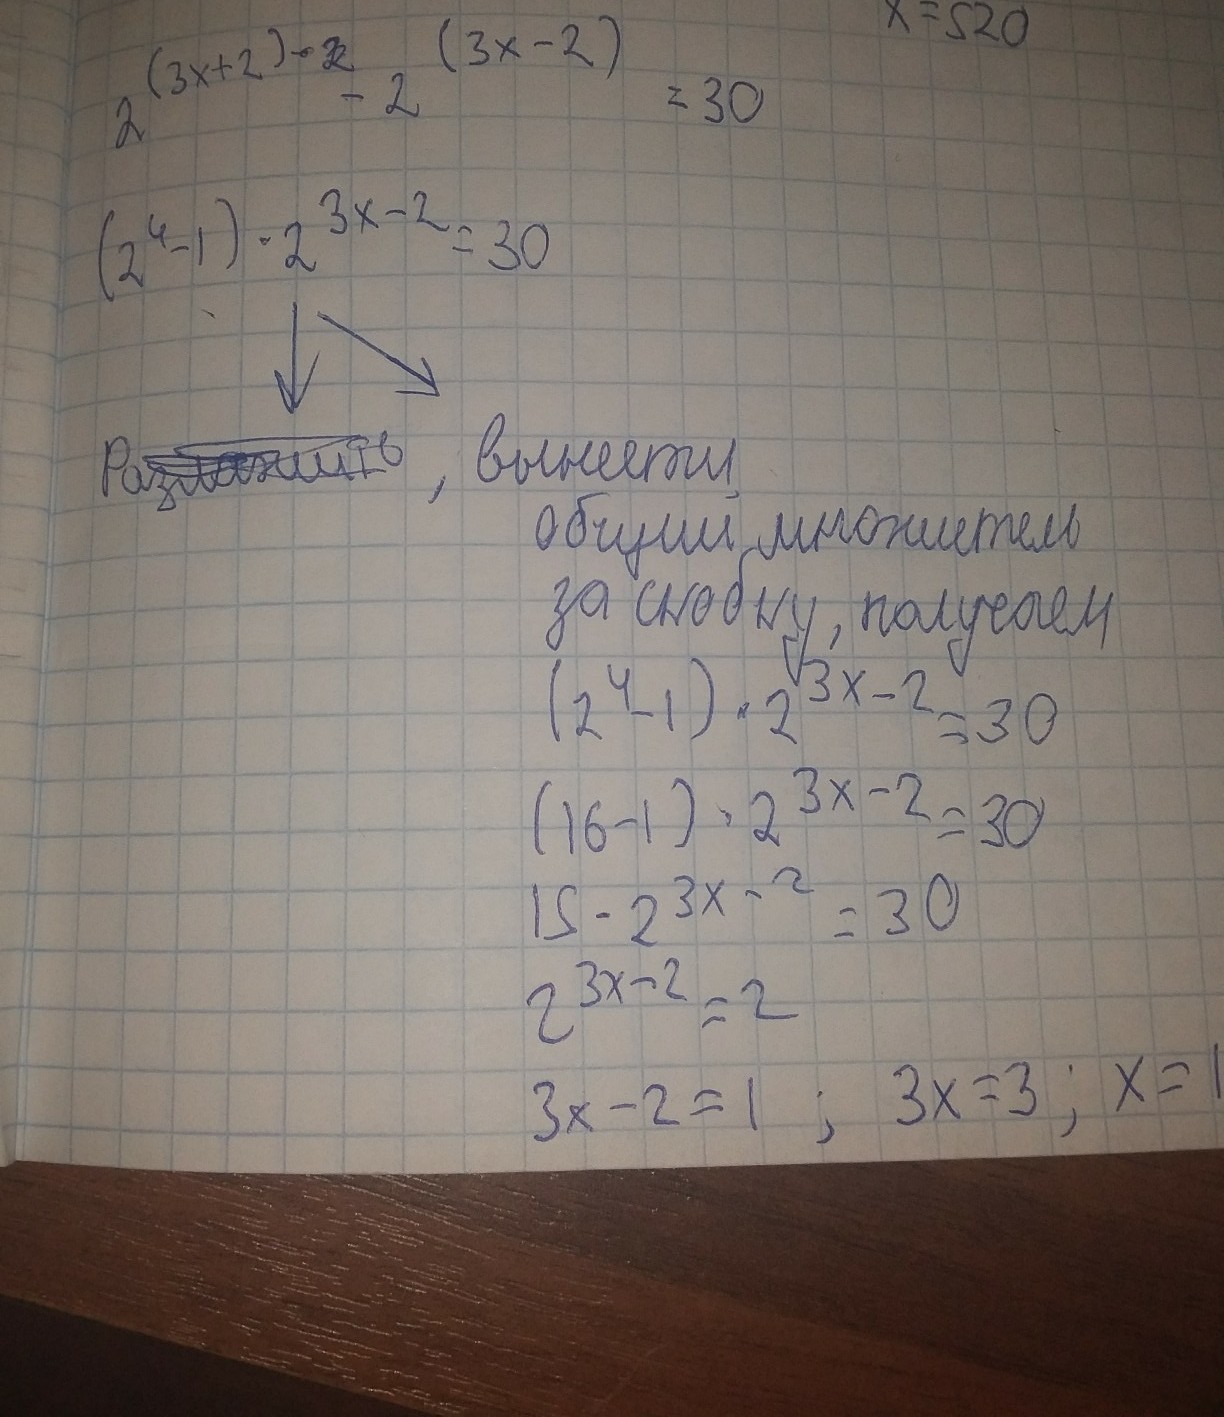 x=520
2^(3x+2) - 2^(3x-2) =30
(2^4-1)·2^3x-2=30
вынести
общий множитель
за скобку, получаем
(2^4-1)·2^3x-2=30
(16-1)·2^3x-2=30
15·2^3x-2=30
2^3x-2=2
3x-2=1 ; 3x=3 ; x=1